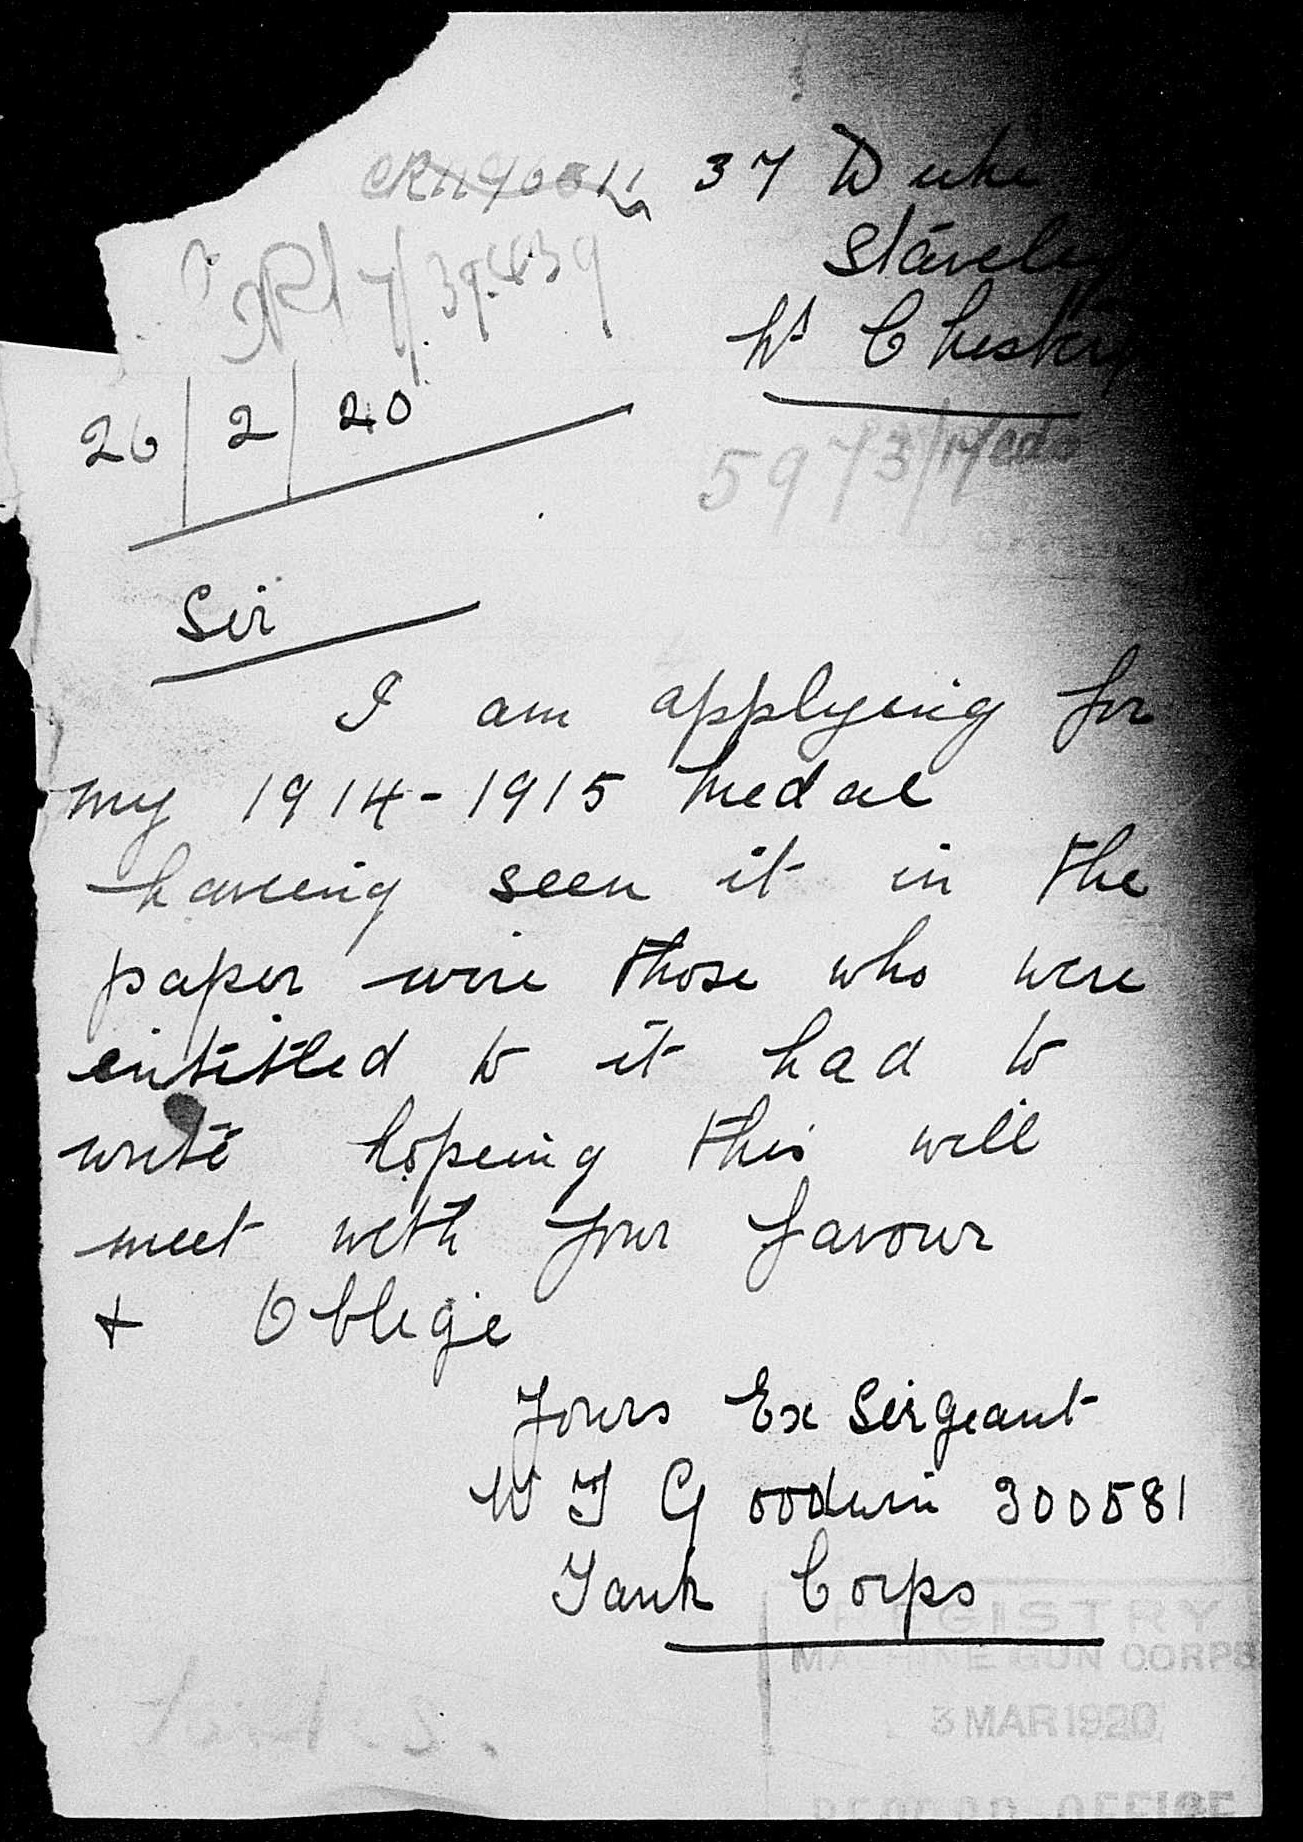 37 Duke
Staveley
Nr Chester
26/2/20
5973/
Sir
I am applying for
my 1914-1915 Medal
haveing seen it in the
paper were those who were
entitled to it had to
write hopeing this will
meet with your favour
+ Oblige
Yours Ex Sergeant
W J Goodwin 300581
Tank Corps
REGISTRY
MACHINE GUN CORPS
3 MAR 1920
RECORD OFFICE